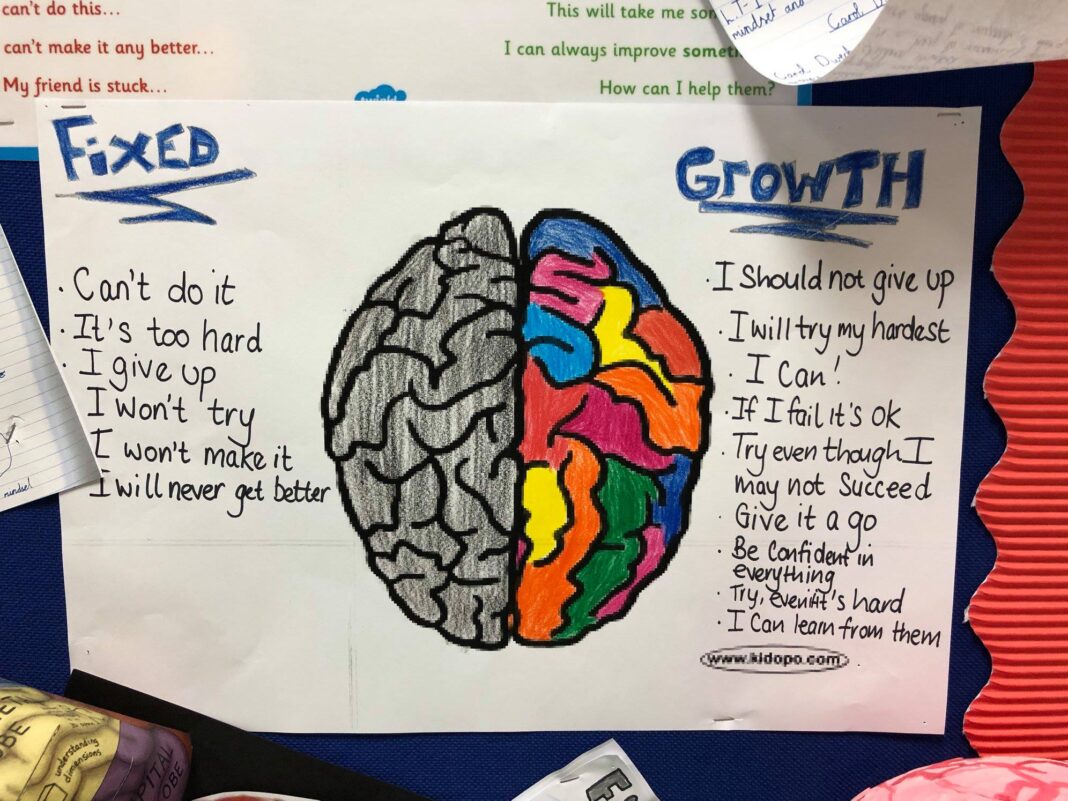 can't do this...
can't make it any better...
My friend is stuck...
This will take me
I can always improve
How can I help them?
mindset and
Carol
Carol Dweck
FixED
· Can't do it
· It's too hard
· I give up
I won't try
I won't make it
I will never get better
GroWTH
· I Should not give up
· I will try my hardest
· I Can!
· If I fail it's ok
· Try even though I
may not Succeed
· Give it a go
· Be Confident in
everything
· Try, even if it's hard
· I Can learn from them
www.kidopo.com
mindset
understanding
dimensions